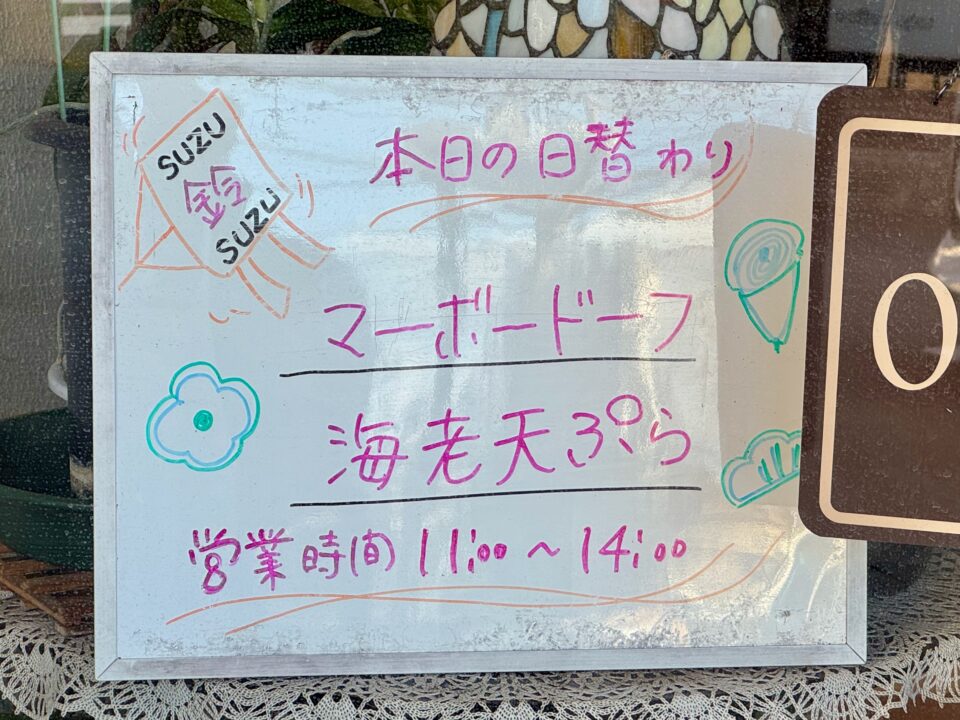 SUZU
鈴
SUZU
本日の日替わり
マーボードーフ
海老天ぷら
営業時間 11:00〜14:00
O